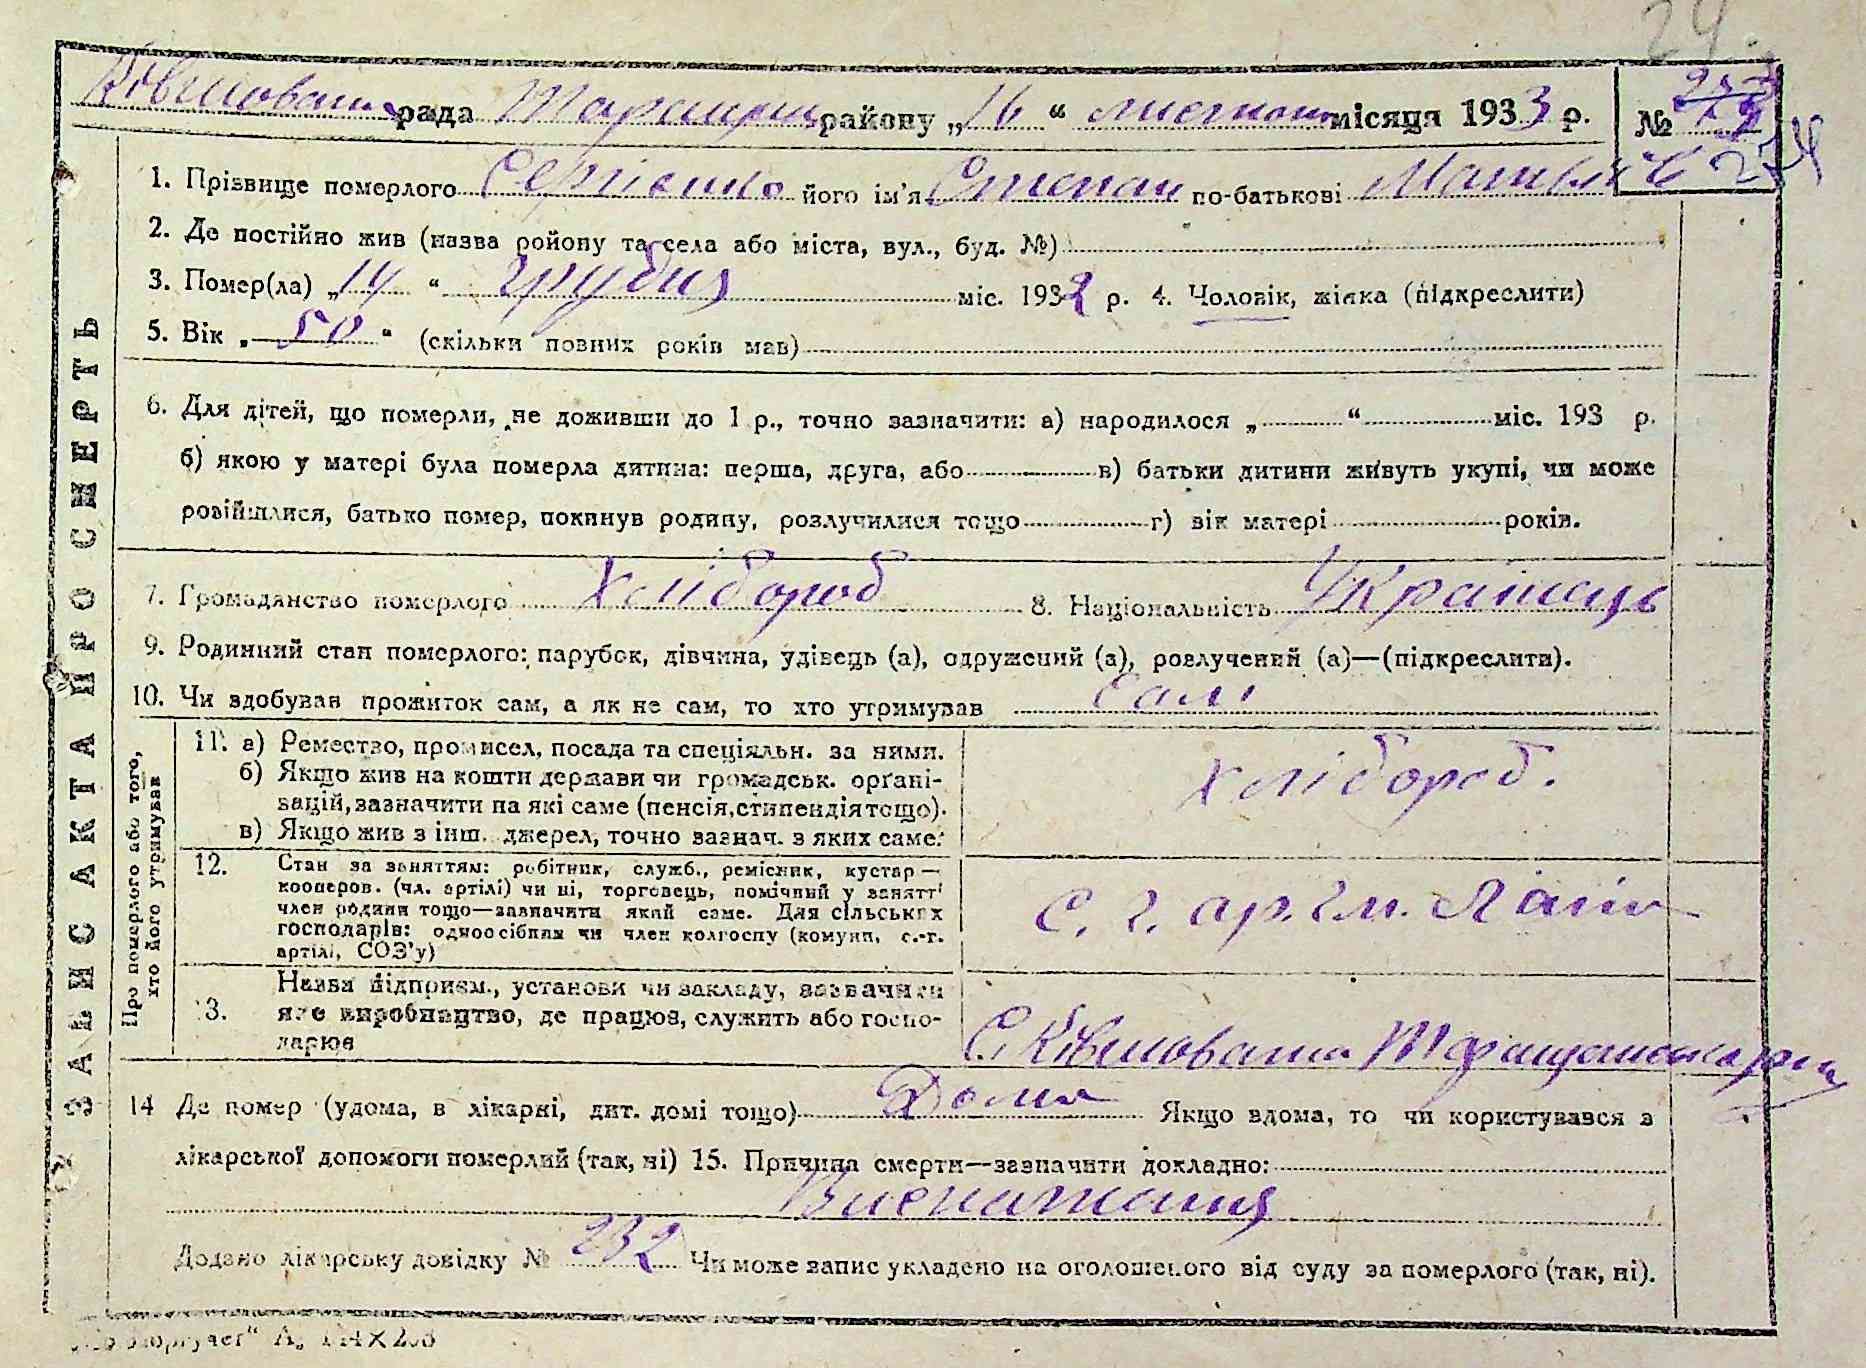 24
Ківшовата рада Таращан району „16“ листопа місяця 1933 р. №
274
1. Прізвище померлого Сергієнко його ім'я Степан по-батькові Матвіїв
2. Де постійно жив (назва ройону та села або міста, вул., буд. №)
3. Помер(ла) „14“ грудня міс. 1932 р. 4. Чоловік, жінка (підкреслити)
5. Вік „50“ (скільки повних років мав)
6. Для дітей, що померли, не доживши до 1 р., точно зазначити: а) народилося „ “ міс. 193 р.
б) якою у матері була померла дитина: перша, друга, або в) батьки дитини живуть укупі, чи може
розійшлися, батько помер, покинув родину, розлучилися тощо г) вік матері років.
7. Громадянство померлого Хлібороб 8. Національність Українець
9. Родинний стан померлого: парубок, дівчина, удівець (а), одружений (а), розлучений (а)—(підкреслити).
10. Чи здобував прожиток сам, а як не сам, то хто утримував Сам
ЗАПИС АКТА ПРО СМЕРТЬ
Про померлого або того,
хто його утримував
11. а) Ремество, промисел, посада та спеціяльн. за ними.
б) Якщо жив на кошти держави чи громадськ. орґані-
зацій, зазначити на які саме (пенсія, стипендія тощо).
в) Якщо жив з інш. джерел, точно зазнач. з яких саме:
хлібороб.
12. Стан за заняттям: робітник, служб., ремісник, кустар—
кооперов. (чл. артілі) чи ні, торговець, помічний у занятті
член родини тощо—зазначити який саме. Для сільських
господарів: одноосібник чи член колгоспу (комуни, с.-г.
артілі, СОЗ'у)
С. г. арт.
13. Назва підприєм., установи чи закладу, зазначити
яке виробництво, де працює, служить або госпо-
дарює
С. Ківшовата Таращанська р-ну
14 Де помер (удома, в лікарні, дит. домі тощо) Дома Якщо вдома, то чи користувався з
лікарської допомоги померлий (так, ні) 15. Причина смерти—зазначити докладно:
Виснаження
Додано лікарську довідку № 232 Чи може запис укладено на оголошеного від суду за померлого (так, ні).